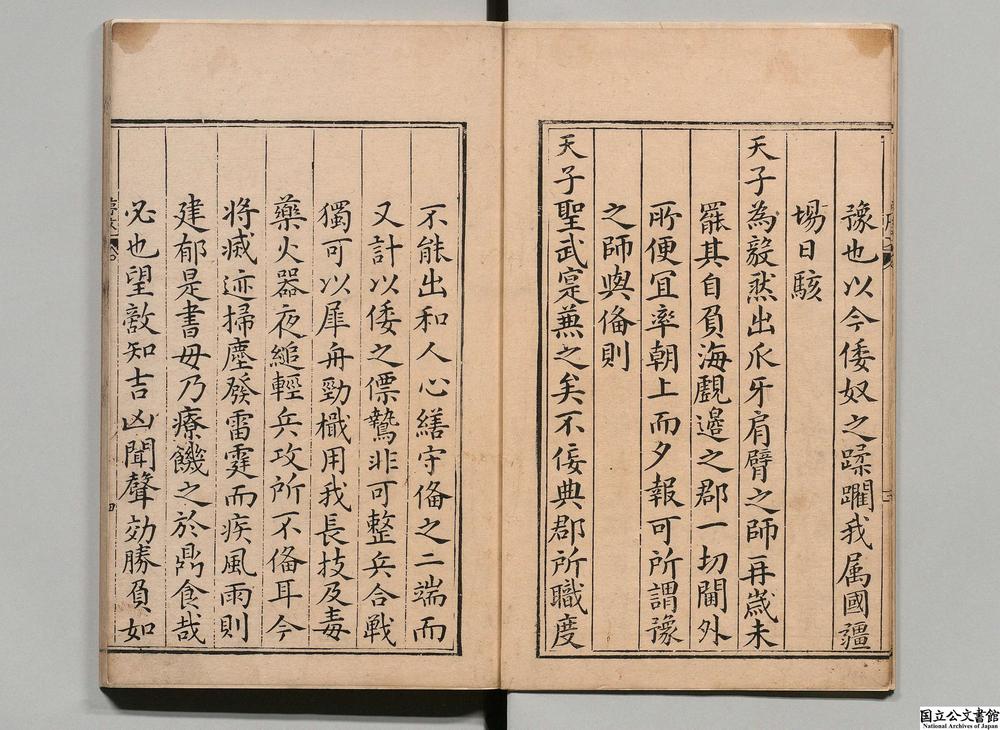 豫也以今倭奴之蹂躙我属國疆
埸日駭
天子為毅然出爪牙肩臂之師再歲未
罷其自負海覷邊之郡一切閫外
所便宜率朝上而夕報可所謂豫
之師與俻則
天子聖武寔蕪之矣不佞典郡所職度
不能出和人心繕守俻之二端而
又計以倭之僄鷙非可整兵合戰
獨可以犀舟勁檝用我長技及毒
藥火器夜縋輕兵攻所不俻耳今
將滅迹掃塵發雷霆而疾風雨則
建郁是書毋乃療饑之於鼎食哉
必也望敵知吉凶聞聲効勝負如
国立公文書館
National Archives of Japan